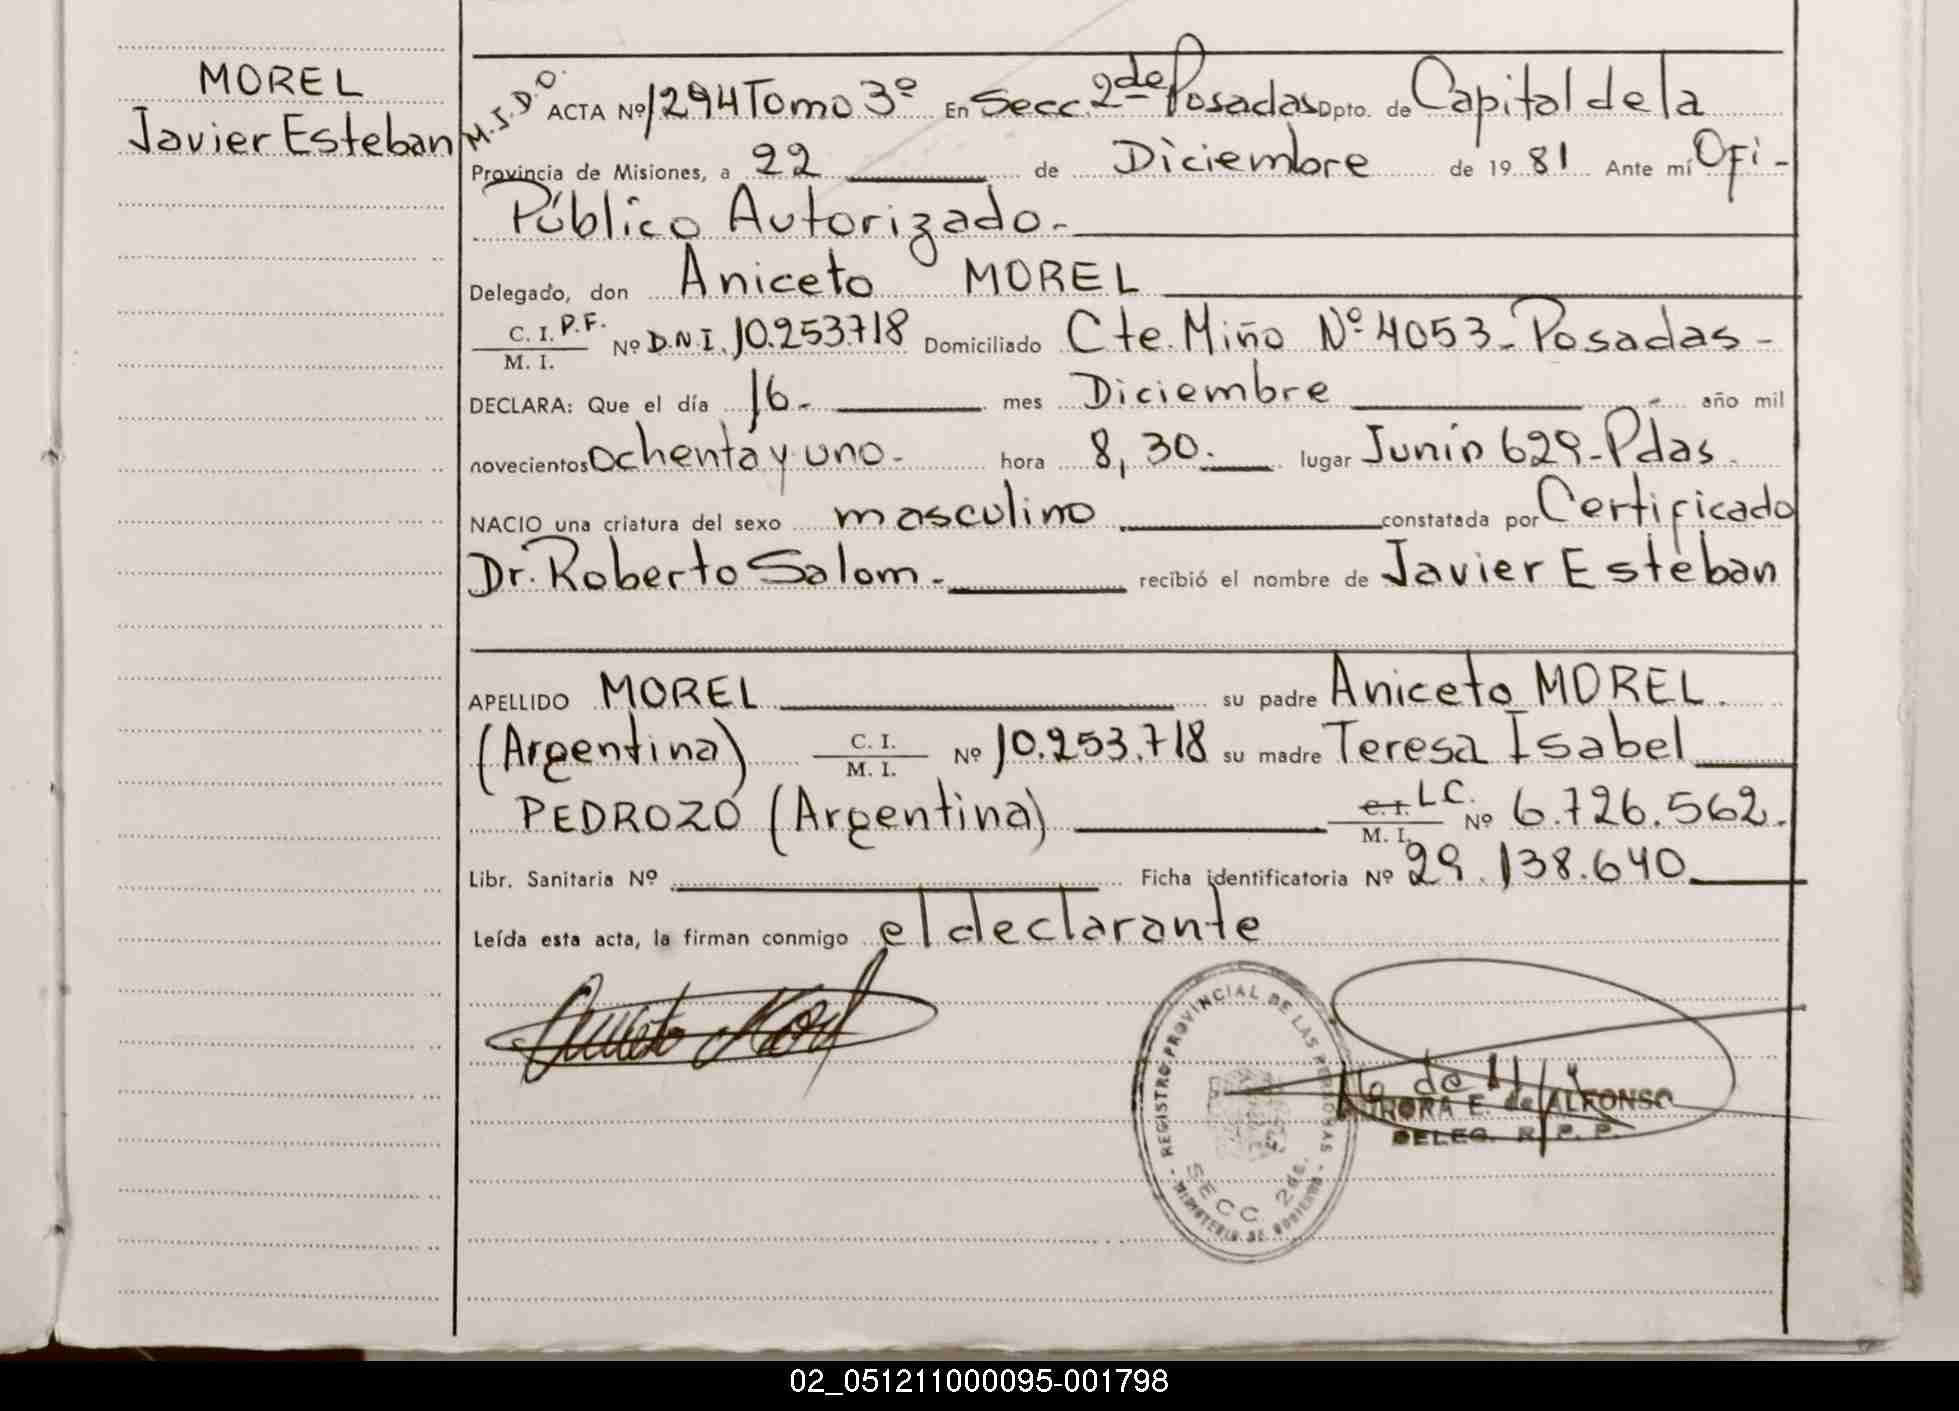 MOREL
Javier Esteban
M.I.D.O.
ACTA Nº 1294 Tomo 3º En Secc. 2de Posadas Dpto. de Capital de la
Provincia de Misiones, a 22 de Diciembre de 1981 Ante mí Ofi-
Público Autorizado.-
Delegado, don Aniceto MOREL
C. I. P.F. M. I. Nº D.N.I. 10.253.718 Domiciliado Cte. Miño Nº 4053 - Posadas -
DECLARA: Que el día 16.- mes Diciembre año mil
novecientos ochenta y uno- hora 8,30. lugar Junín 629-Pdas.
NACIO una criatura del sexo masculino constatada por Certificado
Dr. Roberto Salom.- recibió el nombre de Javier Esteban
APELLIDO MOREL su padre Aniceto MOREL.
(Argentina) C. I. M. I. Nº 10.253.718 su madre Teresa Isabel
PEDROZO (Argentina) C. I. L.C. M. I. Nº 6.726.562.
Libr. Sanitaria Nº Ficha identificatoria Nº 29.138.640
Leída esta acta, la firman conmigo el declarante
Aniceto Morel
REGISTRO PROVINCIAL DE LAS PERSONAS
SECC. 2da.
- MINISTERIO DE GOBIERNO -
AURORA E. de ALFONSO
DELEG. R. P. P.
02_051211000095-001798